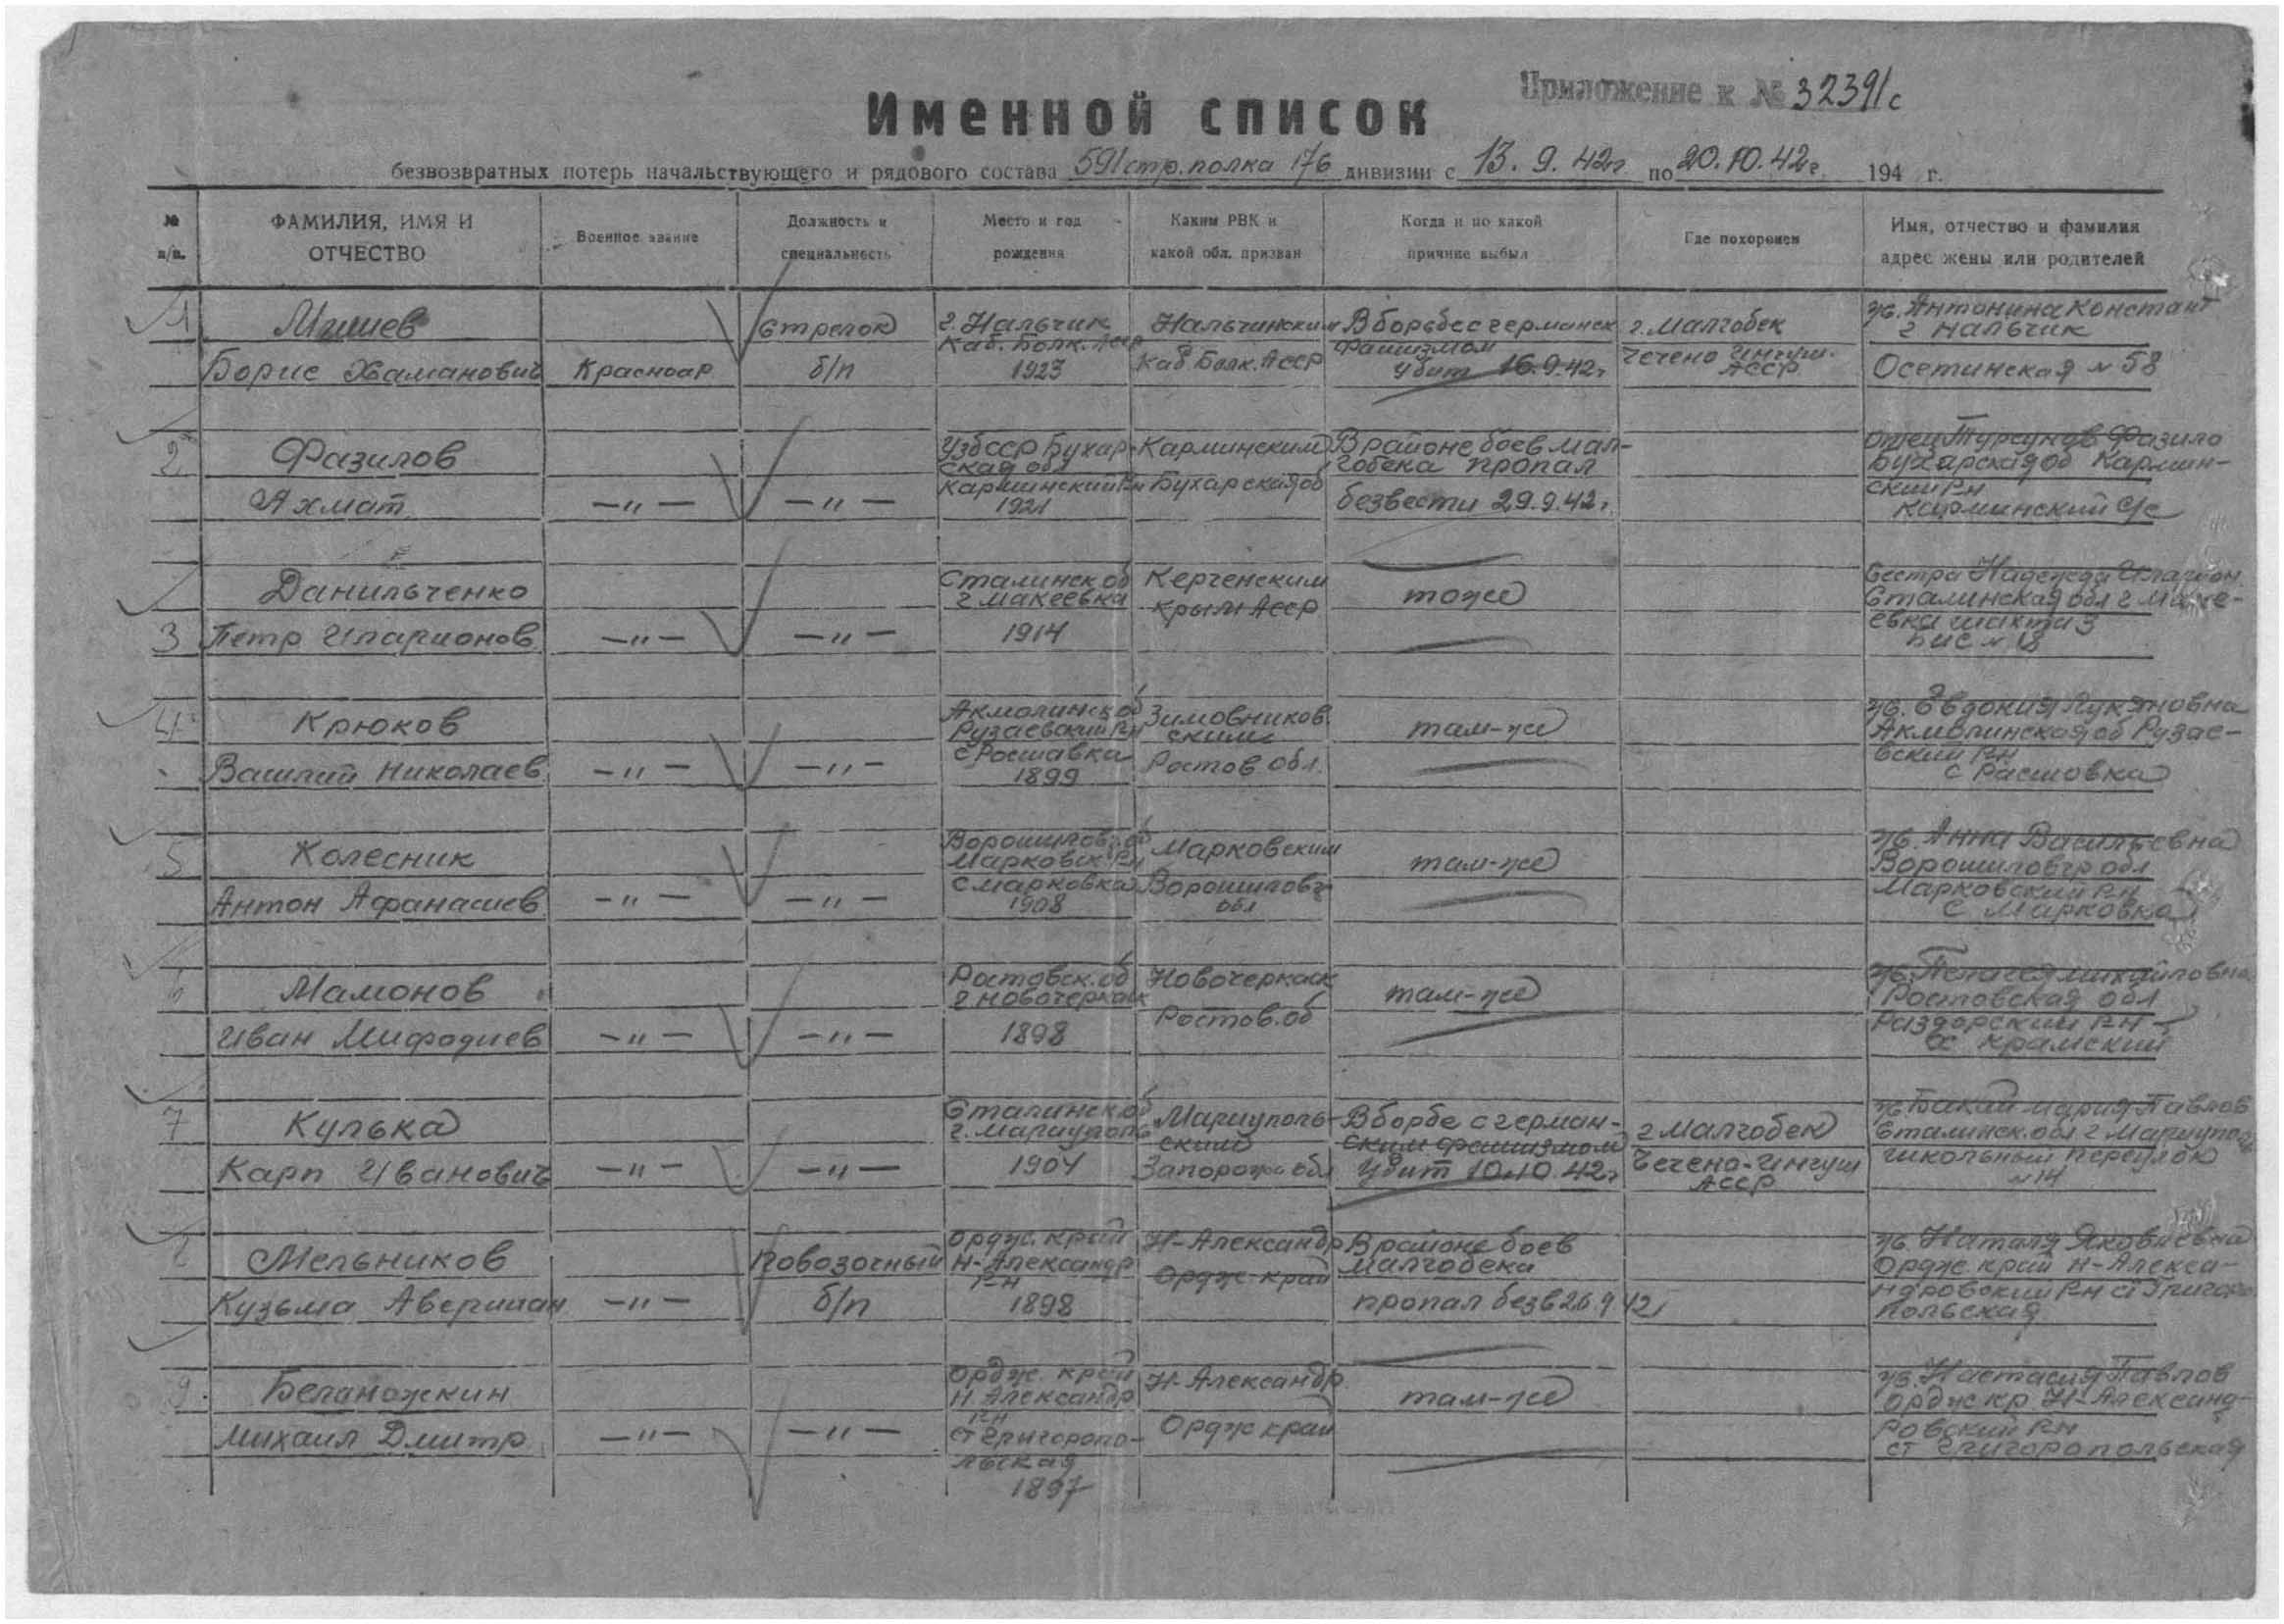 Приложение к № 32391с
Именной список
безвозвратных потерь начальствующего и рядового состава 591 стр. полка 176 дивизии с 13. 9. 42г по 20. 10. 42г. 194 г.
№ п/п.
ФАМИЛИЯ, ИМЯ И ОТЧЕСТВО
Военное звание
Должность и специальность
Место и год рождения
Каким РВК и какой обл. призван
Когда и по какой причине выбыл
Где похоронен
Имя, отчество и фамилия адрес жены или родителей
1
Мишев
Борис Хаманович
Красноар
Стрелок
б/п
г. Нальчик
Каб. Болк. Асср
1923
Нальчински
Каб Балк. Асср
В борьбе с германск
Фашизмом
Убит 16.9.42г
г. Малгобек
Чечено Ингуш.
АССР
ж. Антонина Констант
г Нальчик
Осетинская № 58
2
Фазилов
Ахмат
—"—
—"—
Узбсср Бухар
ская обл
Карминский Рн
1921
Карминским
Бухарская об
В районе боев Мал-
гобека пропал
безвести 29.9.42г.
отец Турсунов Фазило
Бухарская об Кармин-
ский Рн
Карминский С/с
3
Данильченко
Петр Иларионов
—"—
—"—
Сталинск об
г Макеевка
1914
Керченским
Крым Асср
тоже
Сестра Надежда Иларион
Сталинская обл г Маке-
евка шахта 3
№ 18
4
Крюков
Василий Николаев
—"—
—"—
Акмолинск об
Рузаевский Рн
с Росшавка
1899
Зимовников
ским
Ростов обл.
там-же
ж. Евдокия Лукяновна
Акмолинская об Рузае-
вский Рн
с Расшовка
5
Колесник
Антон Афанасиев
—"—
—"—
Ворошилов. об
Марковск Рн
с Марковка
1908
Марковским
Ворошиловгр
обл
там-же
ж. Анна Васильевна
Ворошиловгр обл
Марковский Рн
С Марковка
6
Мамонов
Иван Мифодиев
—"—
—"—
Ростовск. об
г. Новочеркаск
1898
Новочеркаск
Ростов. об
там-же
ж. Пелагея Михайловна
Ростовская обл
Раздорский Р-н
х Крамский
7
Кулька
Карп Иванович
—"—
—"—
Сталинск об
г. Мариуполь
1904
Мариуполь-
ским
Запорож обл
В борбе с герман-
ским фашизмом
Убит 10.10.42г
г Малгобек
Чечено-Ингуш
АССР
ж Бакай Мария Павлов
Сталинск. обл г Мариуполь
Школьный переулок
№ 14
8
Мельников
Кузьма Аверишан
—"—
Повозочный
б/п
Ордж. край
Н-Александр
Р-н
1898
Н-Александр
Ордж-край
В районе боев
Малгобека
пропал безв 26.9 42г
ж. Наталя Яковлевна
Ордж край Н-Алекса-
ндровский Р-н ст Григоро
польская
9.
Белоножкин
Михаил Дмитр
—"—
—"—
Ордж. край
Н. Александр
Рн
ст Григоропо-
льская
1897
Н-Александр.
Ордж край
там-же
ж. Настасия Павлов
Ордж кр. Н-Александ-
ровский Рн
ст Григоропольская